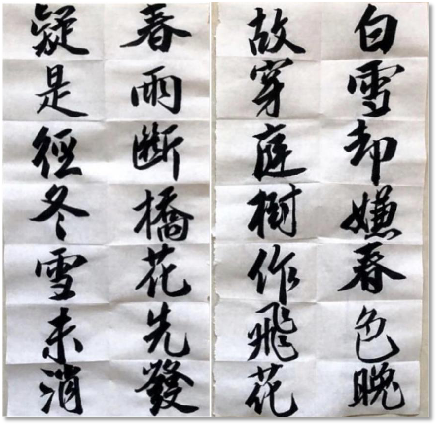 白雪却嫌春色晚
故穿庭樹作飛花
春雨斷橋花先發
疑是徑冬雪未消